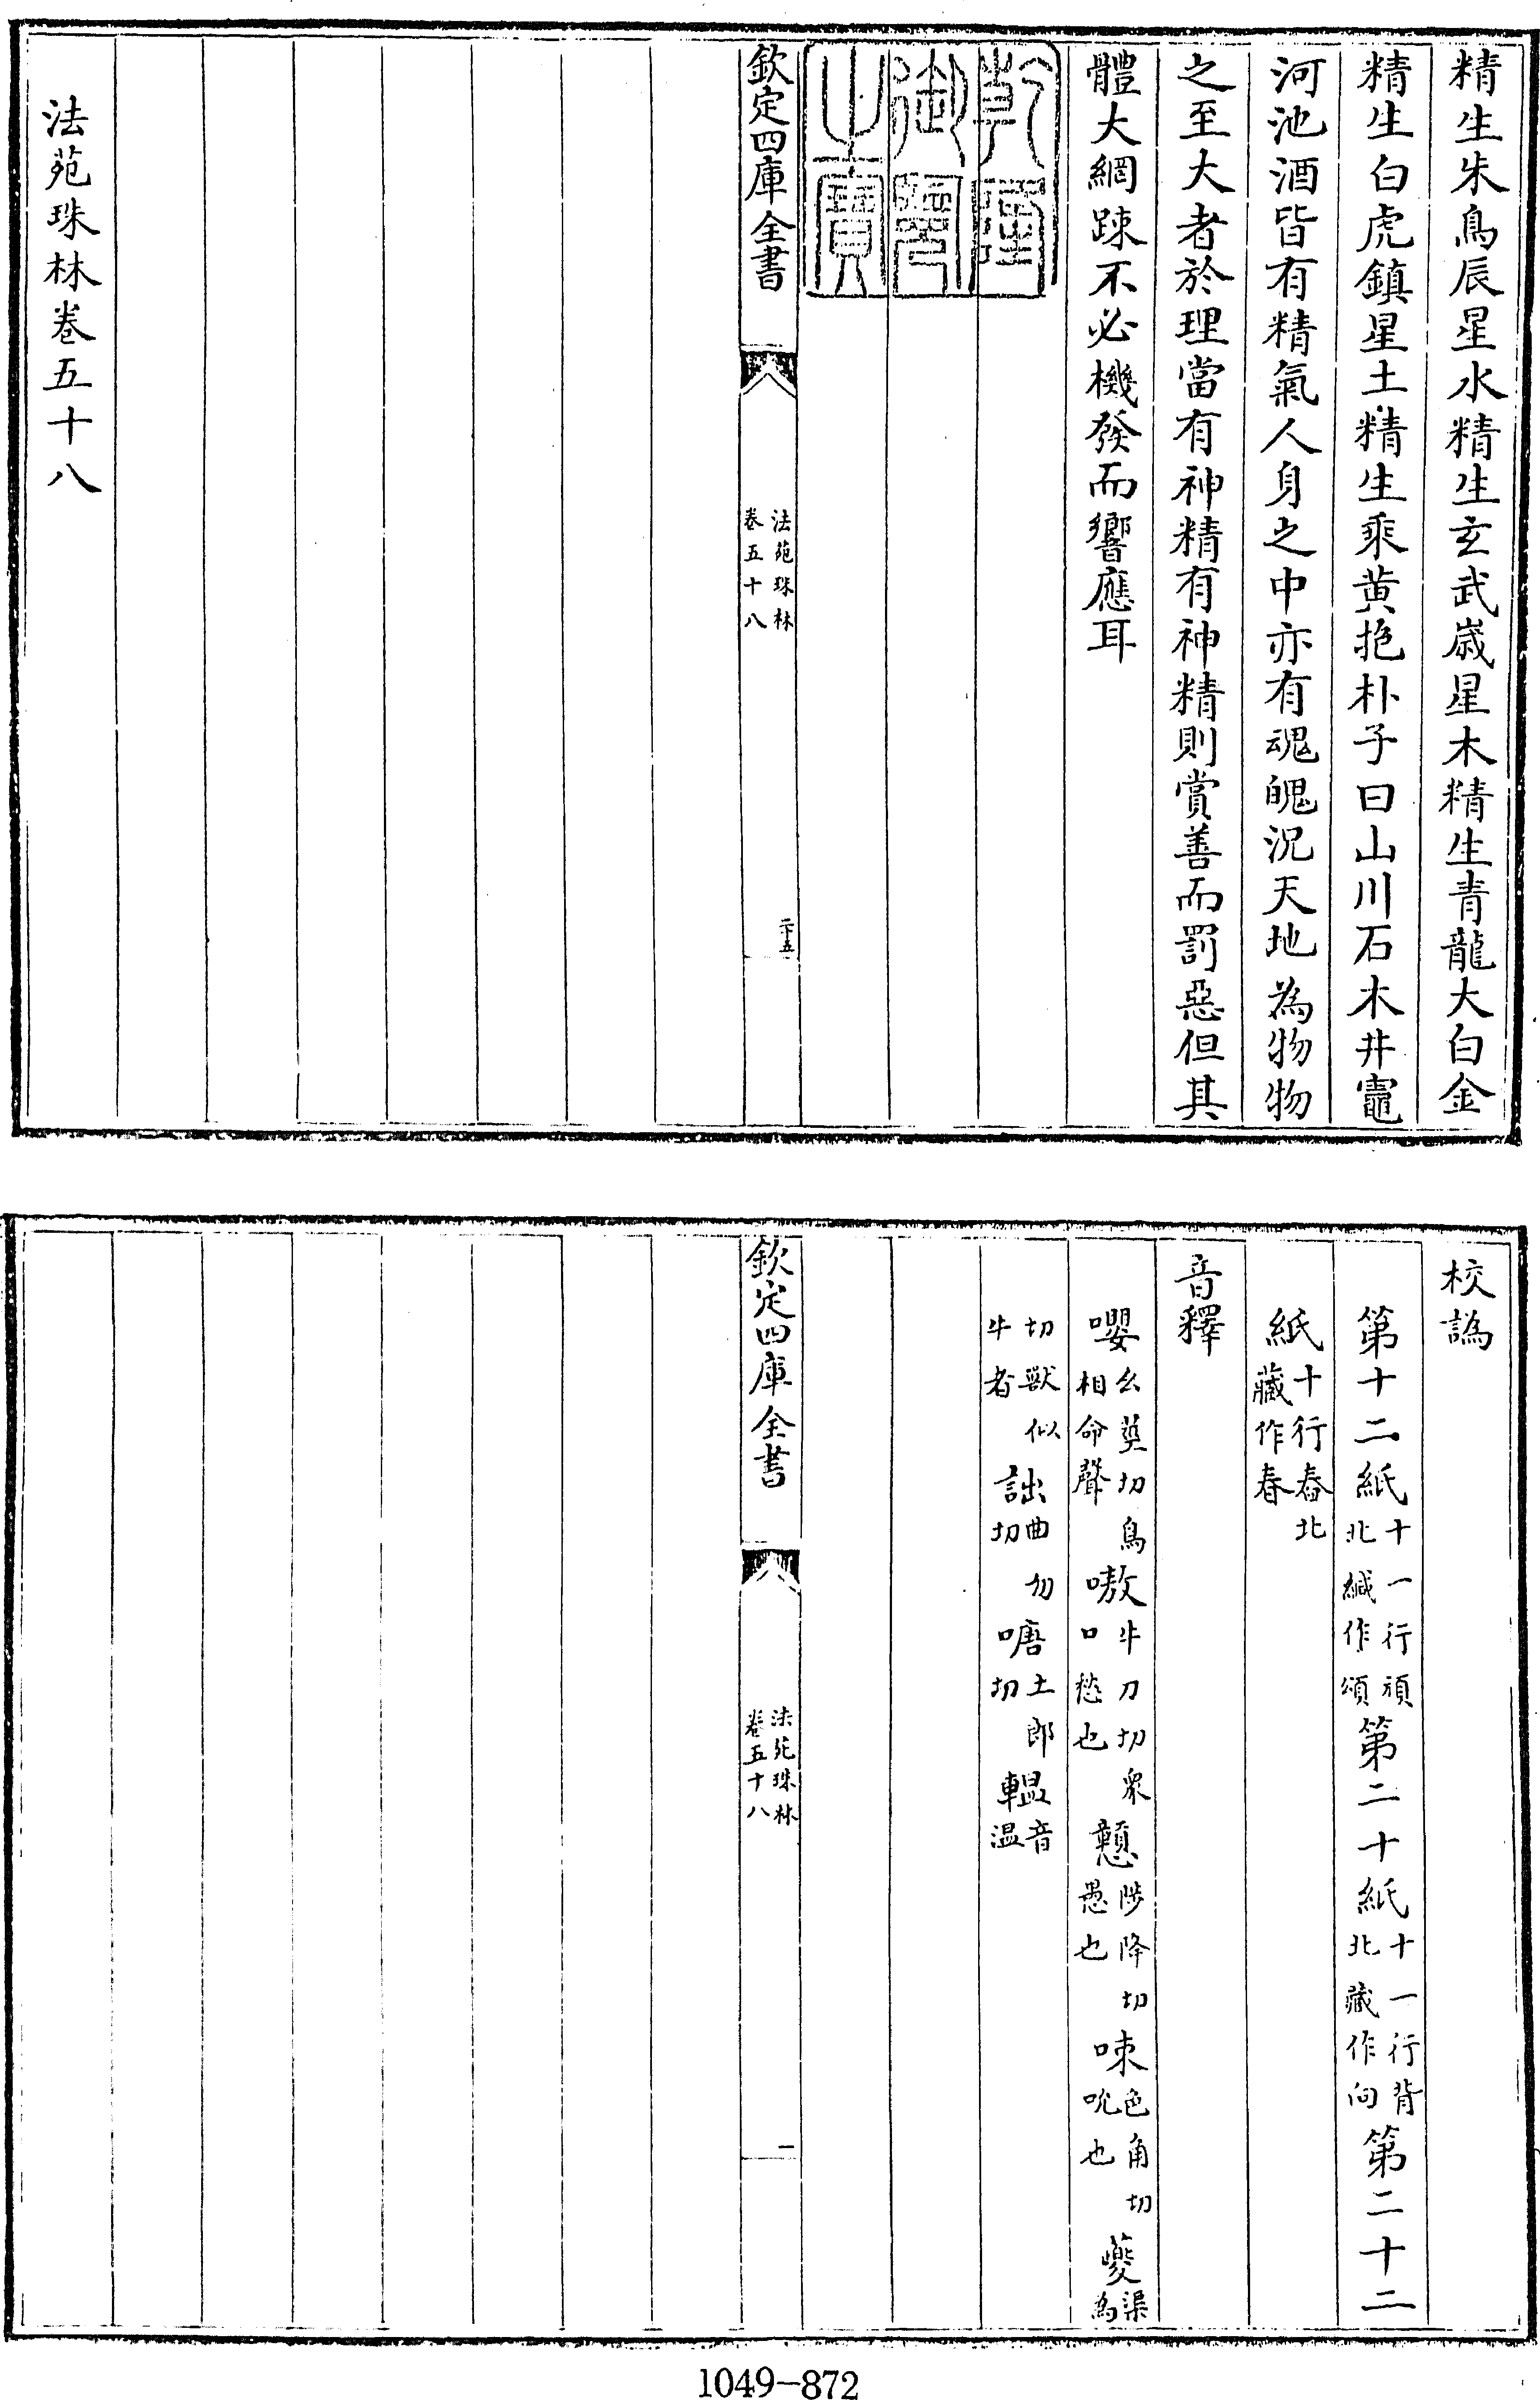 精生朱鳥辰星水精生玄武歲星木精生青龍大白金
精生白虎鎮星土精生乘黃抱朴子曰山川石木井竈
河池酒皆有精氣人身之中亦有魂魄況天地為物物
之至大者於理當有神精有神精則賞善而罰惡但其
體大網踈不必機發而響應耳
乾隆
御覽
之寶
欽定四庫全書
法苑珠林
卷五十八
二十五
法苑珠林卷五十八
校譌
第十二紙十一行頑北緘作頌第二十紙十一行背北藏作向第二十二
紙十行舂北藏作春
音釋
嚶么莖切鳥相命聲嗷牛刀切衆口愁也戇陟降切愚也㖩色角切吮也夔渠為
切獸似牛者詘曲勿切嘡土郎切轀音溫
欽定四庫全書
法苑珠林
卷五十八
一
1049-872